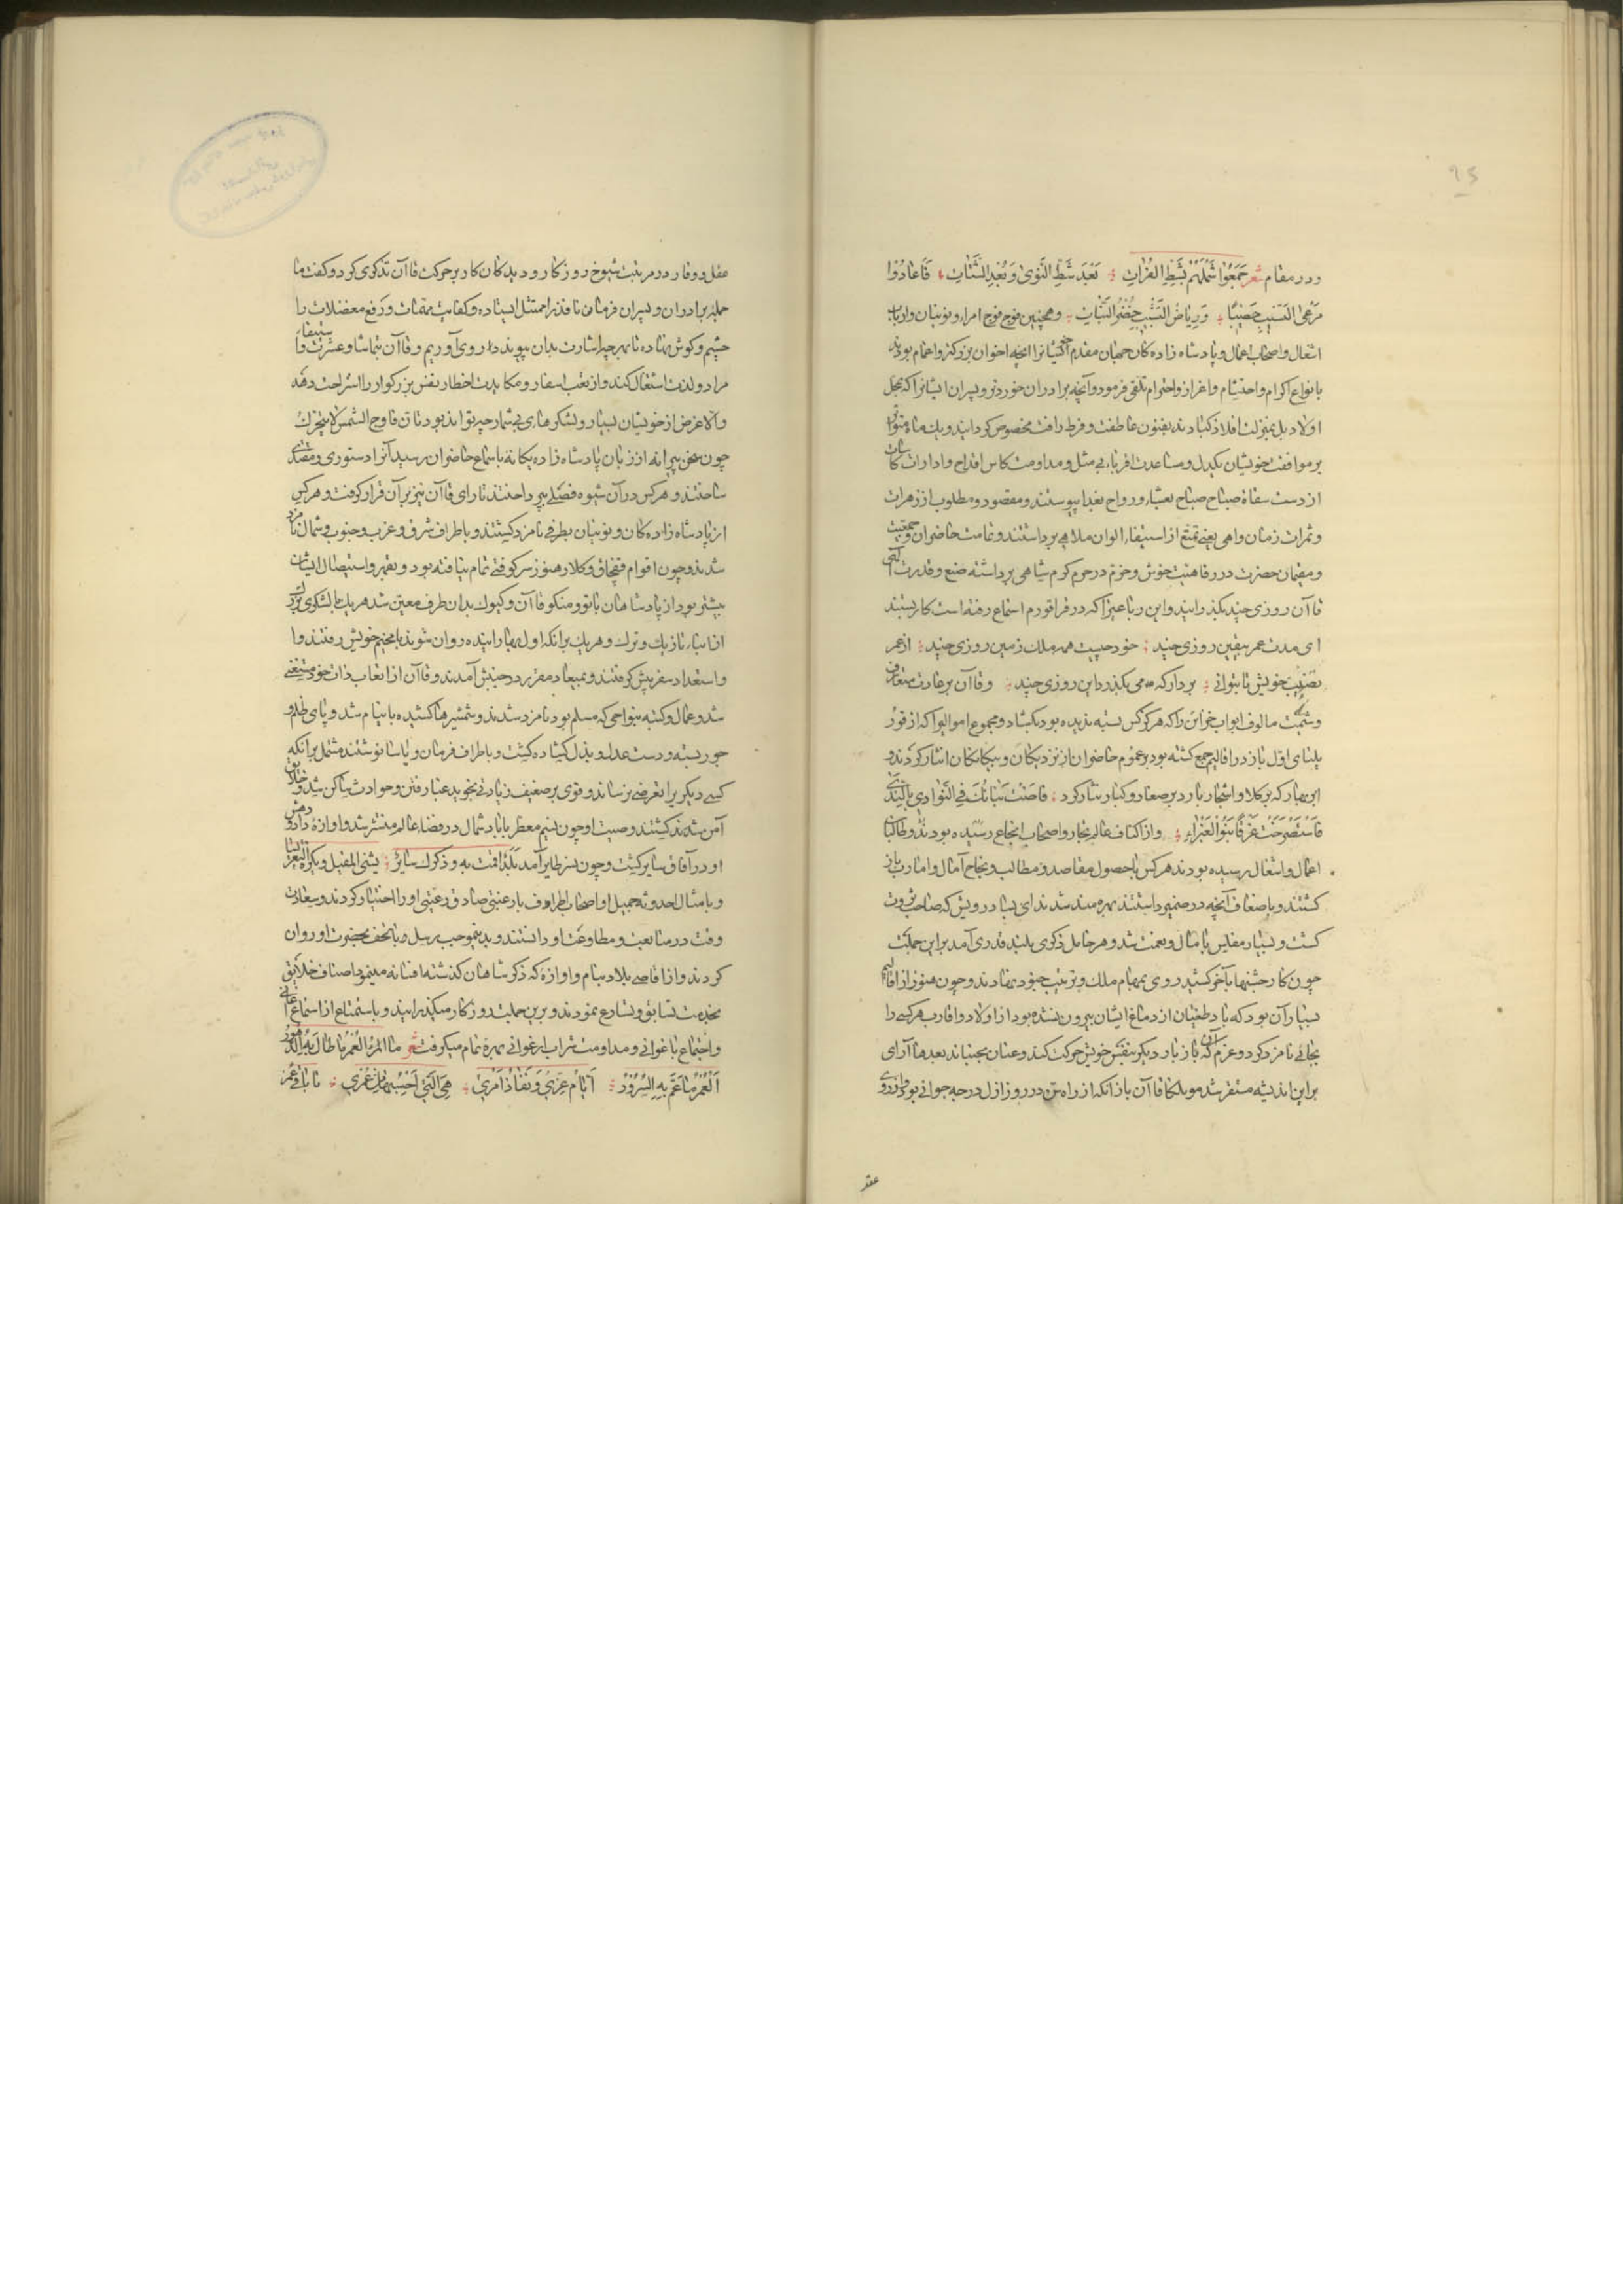 و در مقام شعر جَمَعُوا شَمْلَهُمْ بِشَطِّ الفُرَاتِ بَعْدَ شَطِّ النَّوی وَ بُعْدِ الشَّتَاتِ فَاَعَادُوا
مَرْعَی النَّسِیبِ خَصِیبًا وَ رِیَاضَ التَّشْبِیبِ خُضْرَ النَّبَاتِ و همچنین فوج فوج امرا و نوینیان و ارباب
اشغال و اصحاب اعمال و پادشاه زاده کان جهان مقدم ایشانرا انچه اخوان بزرکتر و اعمام بودند
بانواع اکرام و احتشام و اعزاز و احترام تلقی فرمود و آنچه برادران خوردتر و پسران ایشانرا که بمحل
اولاد بل بمنزلت افلاذ اکباد بفنون عاطفت و فرط رافت مخصوص کردانید و یک ماه متوالی
بر موافقت خویشان یکدل و مساعدت اقرباء بی مثل و مداومت کاس اقداح و ادارات کاسات
از دست سقاة صباح صباح بعشا و رواح بغدا پیوستند و مقصود و مطلوب از زهرات
و ثمرات زمان واهی یعنی تمتع از استیفاء الوان ملاهی برداشتند و تمامت حاضران جمعیت
و مقیمان حضرت در رفاهیت خوش و خرّم در حرم کرم شاهی پرداشته صنع و قدرت الهی
قاآن روزی چند بکذرانیدند و این رباعیرا که در قراقورم استماع رفته است کار بستند
ای مدت عمر بیقین روزی چند خود چیست همه ملک زمین روزی چند از عمر
نصیب خویش تا بتوانی بردار که می بکذرد این روزی چند و قاآن بر عادت متعارف
و شیمت مالوف ابواب خزاین را که هرکز کس بسته ندیده بود بکشاد و مجموع اموالرا که از قور
یلتای اول باز در اقالیم جمع کشته بود بر عموم حاضران از نزدیکان و بیکانکان ایثار کرد و
ابر بهار که بر کلا و اشجار بارد بر صغار و کبار نثار کرد فَاضَتْ بَنَانُكَ فِی النَّوَادِی بِالنَّدَی
فَاسْتَصْرَخَتْ غَرْقًا بَنُو الغَبْرَاءِ و از اکناف عالم تجار و اصحاب انتجاع رسیده بودند و طالبان
اعمال و اشغال رسیده بودند هرکس با حصول مقاصد و مطالب و نجاح آمال و امارب باز
کشتند و باضعاف آنچه در ضمیر داشتند بهره مند شدند ای بسا درویش که صاحب ثروت
کشت و بسیار مفلس با مال و نعمت شد و هر خامل ذکری بلند قدری آمد بر این جملت
چون کار جشنها بآخر کشید روی بمهام ملک و ترتیب جنود نهادند و چون هنوز از اقالیم
بسیار آن بود که باد طغیان از دماغ ایشان بیرون نشده بود از اولاد و اقارب هرکسی را
بجائی نامزد کرد و عزم آنکه باز باد دیکر بنفس خویش حرکت کند و عنان بجنباند بعد ما آرای
بر این اندیشه مستقر شد مونککا قاآن باز آنکه از راه سن در روز ازل درجه جوانی بود از روی
عقل
عقل و وقار در مرتبت شیوخ روزکار و دیدکان کار بر حرکت قاآن تذکری کرد و کفت ما
جمله برادران و پسران فرمان نافذ را ممتثل ایستاده و کفایت مهمّات و رفع معضلات را
چشم و کوش نهاده تا بهرچه اشارت بدان پیوندد روی آوریم و قاآن بتماشا و عشرت و استیفاء
مراد و لذت اشتغال کند و از تعب اسفار و مکابدت اخطار نفس بزرکوار را استراحت دهد
والا غرض از خویشان بسیار و لشکرهای بی شمار چه تواند بود تا ن فاوج الشمس لا یتحرك
چون سخن پیرانه از زبان پادشاه زاده یکانه باسماع حاضران رسید آنرا دستوری و مقتدایی
ساختند و هرکس در آن شیوه فصلی بپرداختند تا رای قاآن نیز بر آن قرار کرفت و هرکس
از پادشاه زاده کان و نوینیان بطرفی نامزد کشتند و باطراف شرق و غرب و جنوب و شمال نامزد
شدند و چون اقوام قفچاق و کلار هنوز سرکوفتی تمام نیافته بود و بقهر و استیصال ایشان
بیشتر بود از پادشاهان باتو و منکو قاآن و کیوك بدان طرف معین شد هر یك با لشکری بزرك
از ابناء تازیك و ترك و هر یك بر انکه اول بهار اینده روان شوند بمخیم خویش رفتند و ا
و استعداد سفر پیش کرفتند و بمیعاد مقرر در جنبش آمدند و قاآن از اتعاب ذات خود مستغنی
شد و عمال و کتبه بنواحی که مسلم بود نامزد شدند و شمشیرها کشیده با نیام شد و پای ظلم و
جور بسته و دست عدل و بذل کشاده کشت و باطراف فرمان و یاسا نوشتند مشتمل بر انکه
کسی دیکریرا تعرضی نرساند و قوی بر ضعیف زیادتی نجوید غبار فتن و حوادث ساکن شد و خلایق
آمن شدند کشتند وصیت او چون نسیم معطر با باد شمال در فضاء عالم منتشر شد و اوازهٔ داد و دهش
او در آفاق سایر کشت و چون نسر طایر آمد بَلَدٌ اقمت به و ذکرك سائرٌ یشنی المقیل و یکره التعریسا
و بامثال احدوثه جمیل او اصحاب اطراف بارغبتی صادق رعیتی او را اختیار کردند و سعادت
وقت در متابعت و مطاوعت او دانستند و بدینموجب برسل و با تحف بحضرت او روان
کردند و از اقاصی بلاد بنام و اوازه که ذکر شاهان کذشته افسانه مینمود اصناف خلایق
بخدمت تسابق و تسارع نمودند و برین جملت روزکار میکذرانید و باستمتاع از استماع اغانی
و اجتماع با غوانی و مداومت شراب ارغوانی بهرهٔ تمام میکرفت شعر ما العُمْرُ ما طالَ بِهِ الدُّهُورُ
اَلْعُمْرُ مَا تَمَّ بِهِ السُّرُورُ اَیَّامُ عِزِّی وَ نَفَاذُ اَمْرِی هِیَ الَّتِی اَحْسِبُهَا مِنْ عُمْرِی تا باقی عمر